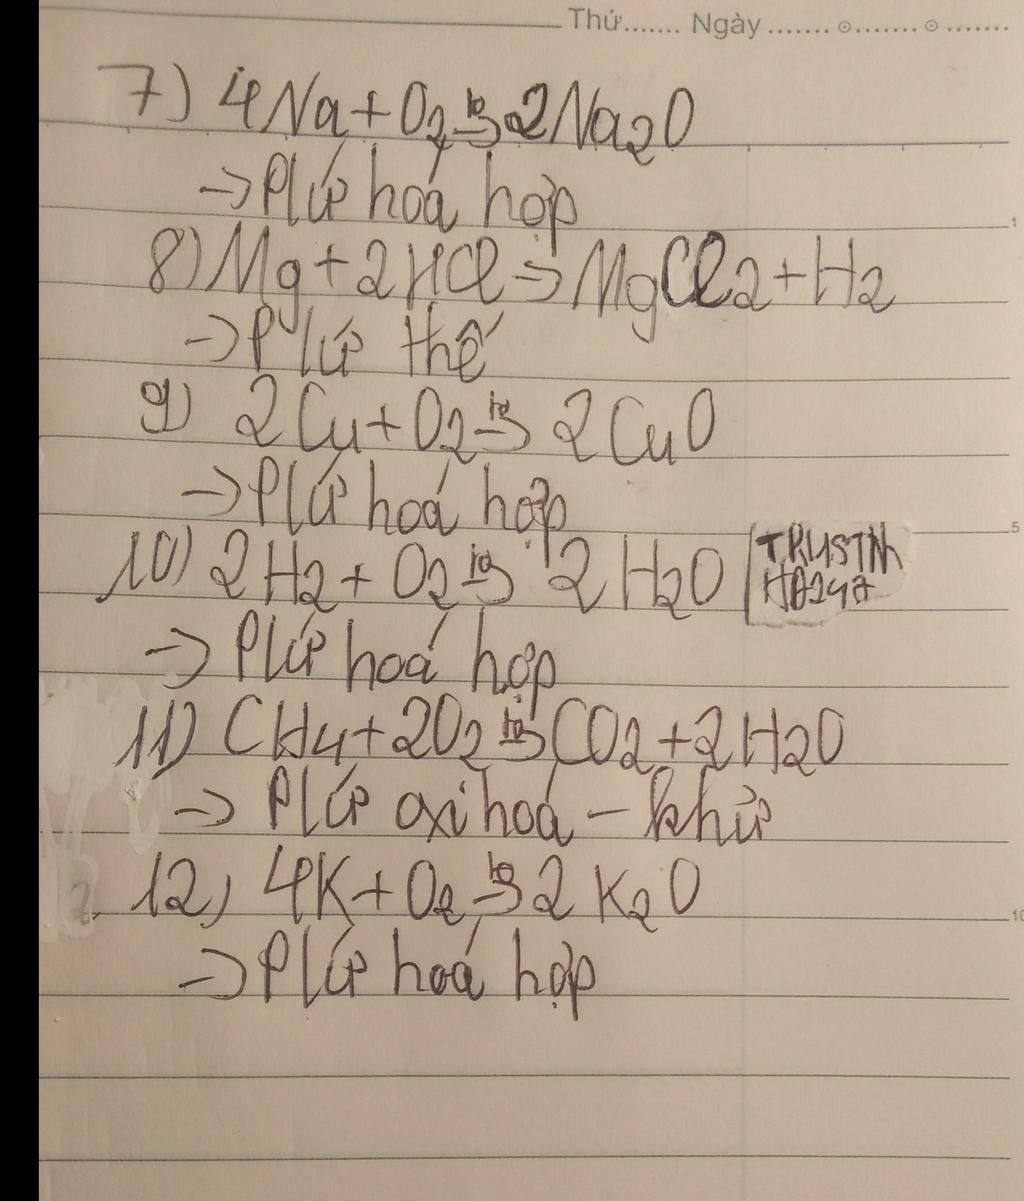 Thứ....... Ngày ....... ⊙....... ⊙ .......
7) 4Na + O2 tº→ 2Na2O
→ Pứ hoá hợp
1
8) Mg + 2HCl → MgCl2 + H2
→ Pứ thế
9) 2Cu + O2 tº→ 2CuO
→ Pứ hoá hợp
5
10) 2H2 + O2 tº→ 2H2O
→ Pứ hoá hợp
11) CH4 + 2O2 tº→ CO2 + 2H2O
→ Pứ oxi hoá - khử
12) 4K + O2 tº→ 2K2O
10
→ Pứ hoá hợp